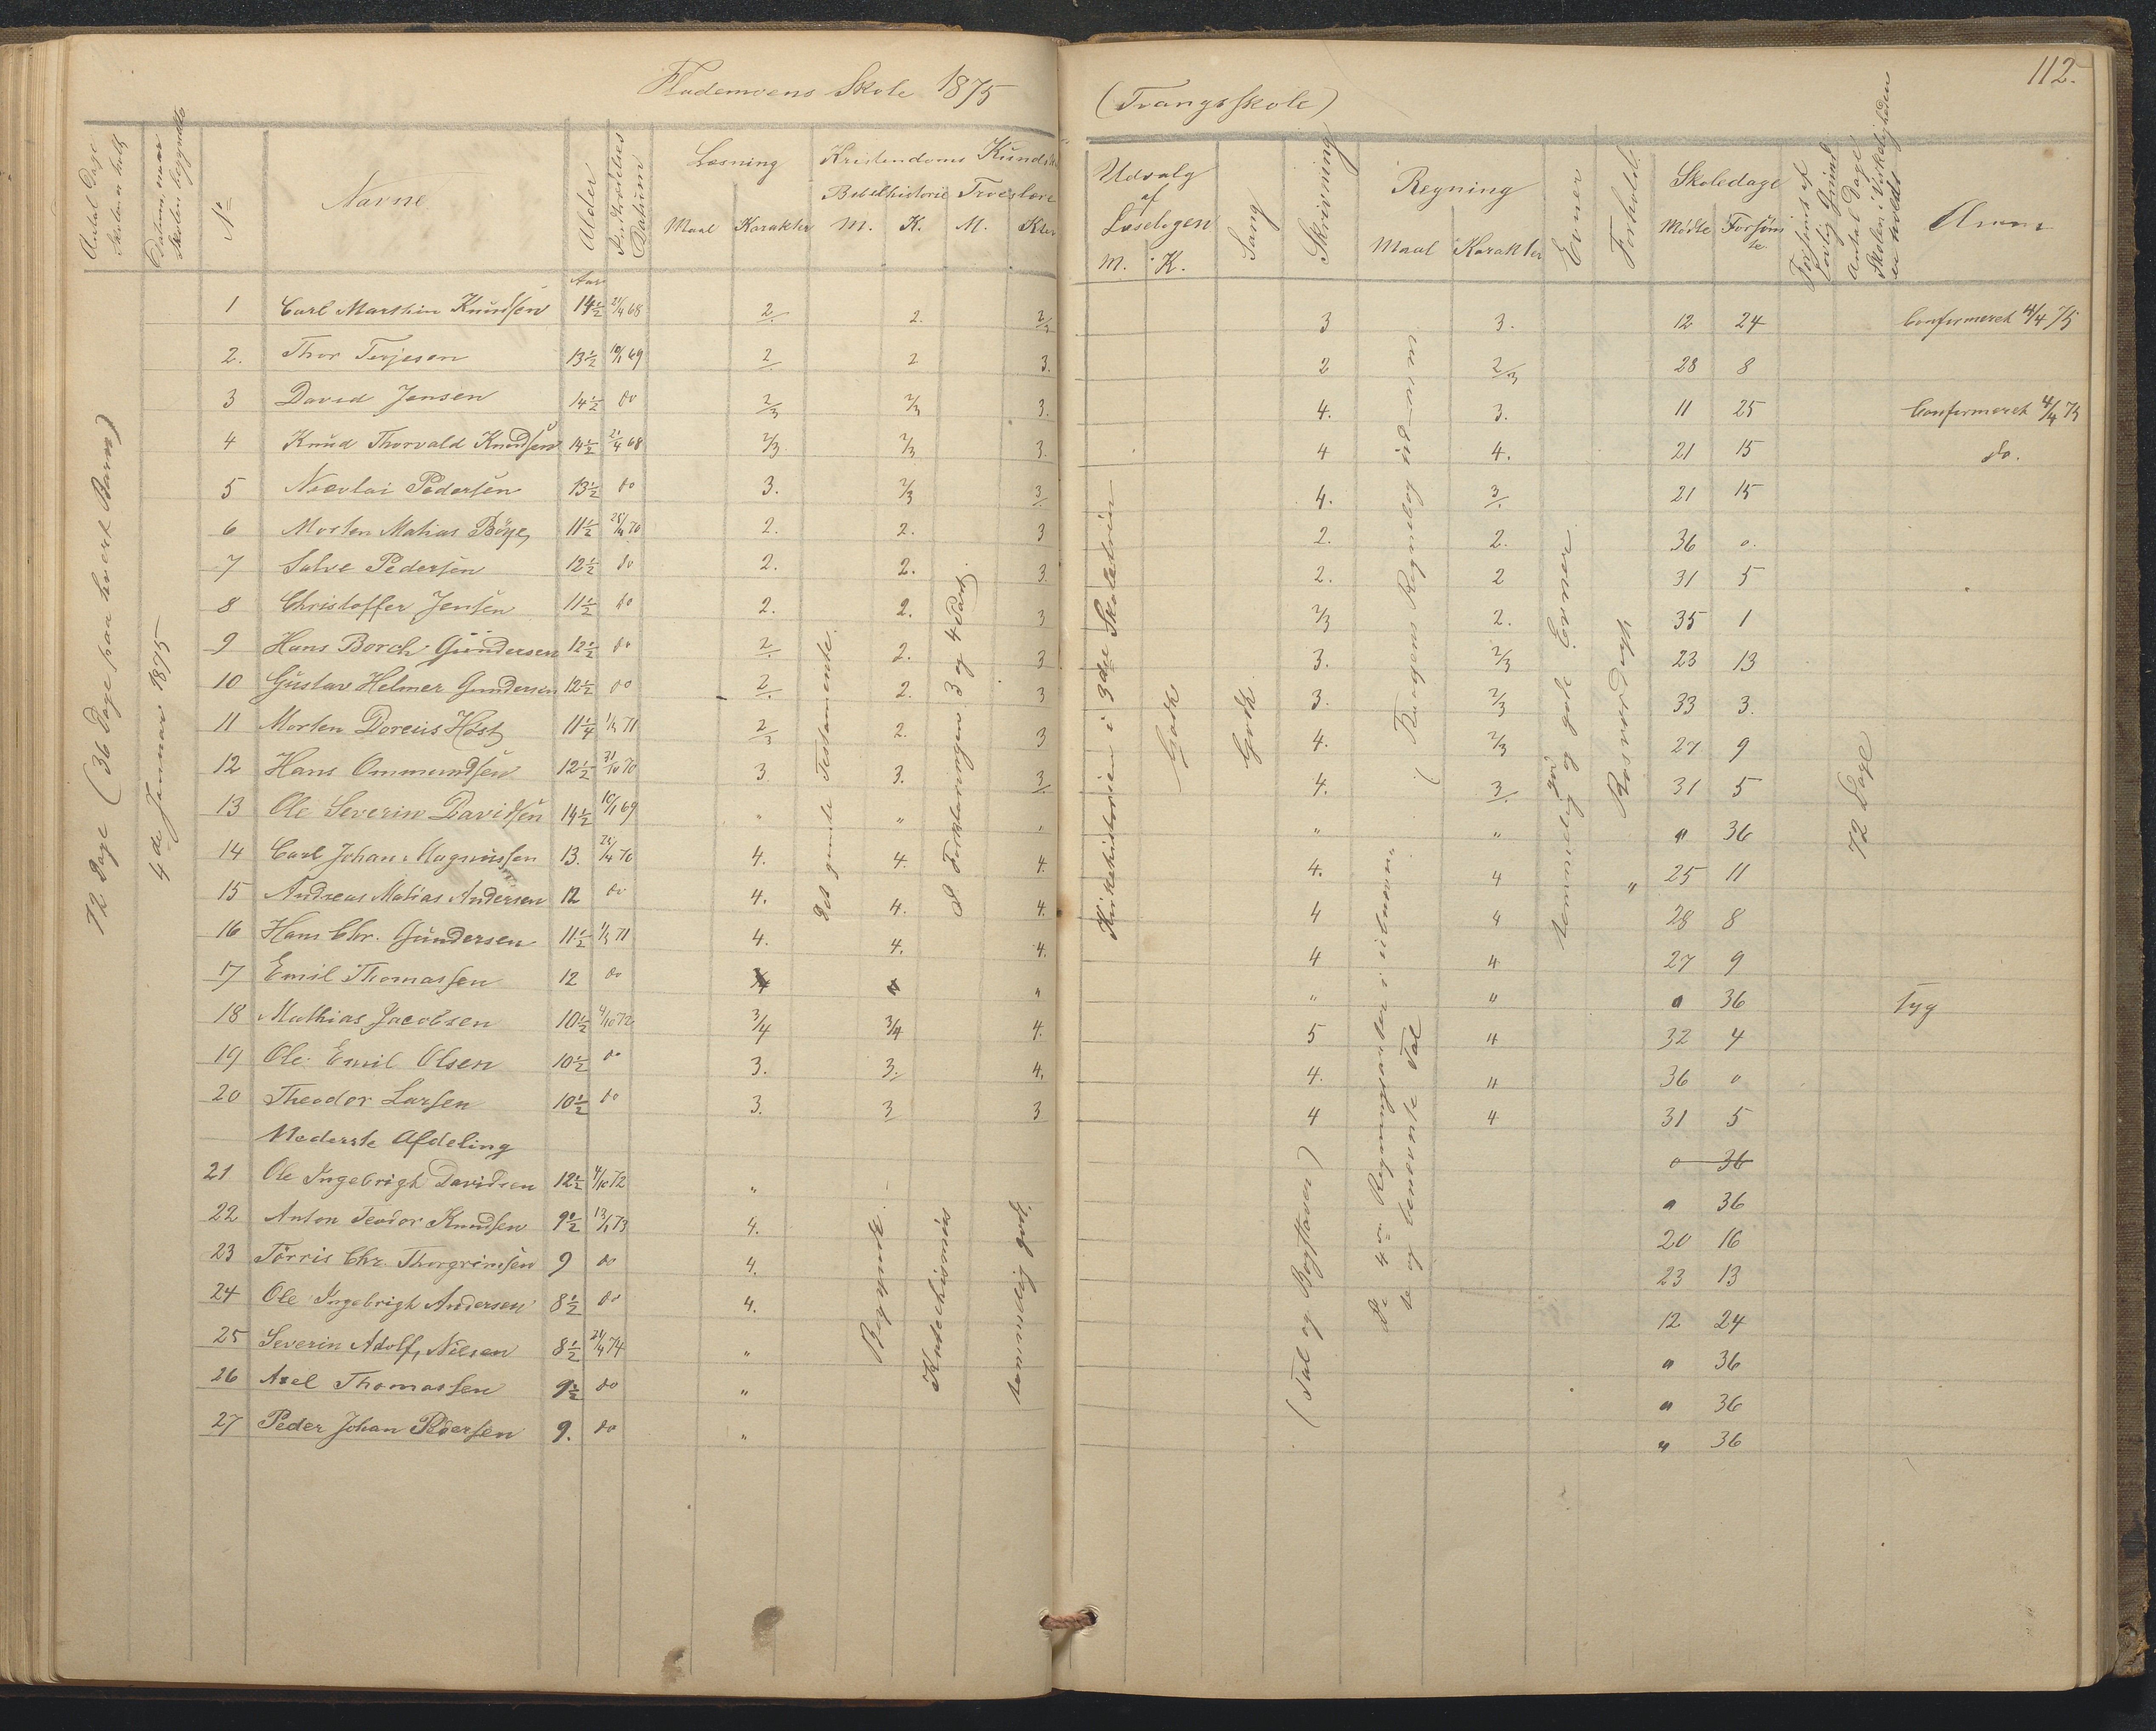 Skole 1875 (Tvangsskole) 112.
Antal Dage Skolen holdt
Datum, naar Skolen begyndte
No
Navne
Alder
Indskrivelses Datum
Læsning
Maal Karakter
Kristendoms
Bibelhistorie Troeslære
M. K. M.
Udvalg
af
Læsebogen
M. K.
Sang
Skrivning
Regning
Maal Karakter
Evner
Forhold
Skoledage
Mødte Forsømte
Forsømt af lovlig Grund
Antal Dage Skolen i Virkeligheden er holdt
Anm
72 Dage (36 Dage paa hvert Barn)
4de Januar 1875
Aar
1 Carl Marthin Knudsen 14½ 21/4 68 2 2. 2/3 3 3. 12 24 Confirmeret 4/4 75
2. Thor Terjesen 13½ 10/1 69 2 2 3. 2 2/3 28 8
3 David Jensen 14½ do 2/3 2/3 3. 4. 3. 11 25 Confirmeret 4/4 75
4 Knud Thorvald Knudsen 14½ 21/4 68 2/3 2/3 3. 4 4. 21 15 do.
5 Nicolai Pedersen 13½ do 3. 2/3 3 4. 3 21 15
6 Morten Matias Böye 11½ 25/4 70 2. 2. 3 2. 2. 36 0.
7 Salve Pedersen 12½ do 2. 2. 3. 2. 2 31 5
8 Christoffer Jensen 11½ do 2. 2. 3 2/3 2. 35 1
9 Hans Borch Gundersen 12½ do 2. 2. 3 3. 2/3 23 13
10 Gustav Helmer Gundersen 12½ do 2. 2. 3 3. 2/3 33 3.
11 Morten Doreus Høst 11¼ 71 2/3 2. 3 4. 2/3 27 9
12 Hans Ommundsen 12½ 31/10 70 3. 3. 3 4. 3 31 5
13 Ole Severin Davidsen 14½ 10/1 69 " " " " " " 36
14 Carl Johan Magnussen 13. 25/4 70 4. 4. 4. 4. 4 25 11
15 Andreas Matias Andersen 12 do 4. 4. 4. 4 4 28 8
16 Hans Chr. Gundersen 11½ 71 4. 4. 4. 4 4 27 9
17 Emil Thomassen 12 do " " " 0 36 Tyg
18 Mathias Jacobsen 10½ 4/10 72 3/4 3/4 4. 5 " 32 4
19 Ole Emil Olsen 10½ do 3. 3. 4. 4. " 36 0
20 Theodor Larsen 10½ do 3. 3 3 4 4 31 5
Nederste Afdeling 0 36
21 Ole Ingebrigt Davidsen 12½ 4/10 72 " " 36
22 Anton Teodor Knudsen 9½ 13/1 73 4. 20 16
23 Törris Chr. Thorgrimsen 9 do 4. 23 13
24 Ole Ingebrigt Andersen 8½ do 4. 12 24
25 Severin Adolf Nilsen 8½ 74 " " 36
26 Axel Thomassen 9½ do " " 36
27 Peder Johan Pedersen 9. do " " 36
Det gamle Testamente.
Forklaringen 3 og 4 Part.
Kirkehistorien i 3die Skoletrin
Godt
Godt.
temmelig gode og gode Evner
Rosværdigt
72 Dage
Begyndt.
Katekismus
temmelig godt.
(Tal og Bogstaver)
De 4 Regningsarter i
og benævnte Tal